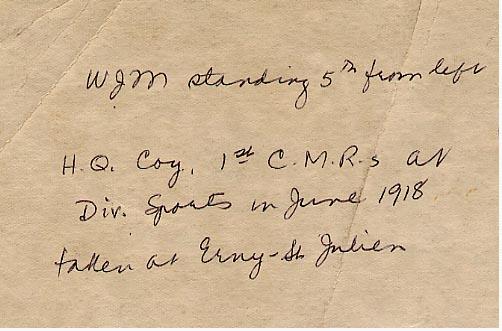 WJM standing 5th from left
H.Q. Coy, 1st C.M.R.s at
Div. Sports in June 1918
taken at Erny-St Julien